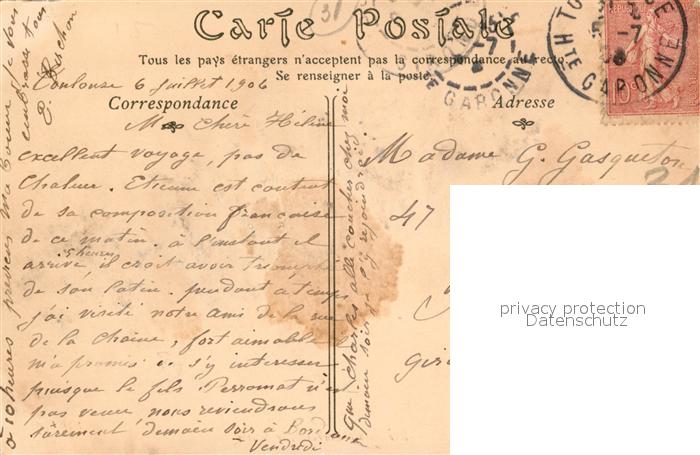 Carte Postale
Tous les pays étrangers n'acceptent pas la correspondance au recto.
Se renseigner à la poste.
Toulouse 6 Juillet 1906
Correspondance
Ma chère Hélène
excellent voyage, pas de
chaleur. Etienne est content
de sa composition française
de ce matin. à l'instant il
5 heures
arrive, il croit avoir triomphé
de son latin. pendant ce temps
j'ai visité notre ami de la rue
de la chaîne, fort aimable il
m'a promis de s'y intéresser
puisque le fils Perromat n'est
pas venu nous reviendrons
sûrement demain soir à Bordeaux
Vendredi
à 10 heures préviens ma soeur je vous
embrasse tous
que charles aille coucher chez moi
demain soir je l'y rejoindrai
Adresse
Madame G. Gasqueton
47
Gir
31
TOULOUSE
Hte GARONNE
10
privacy protection
Datenschutz